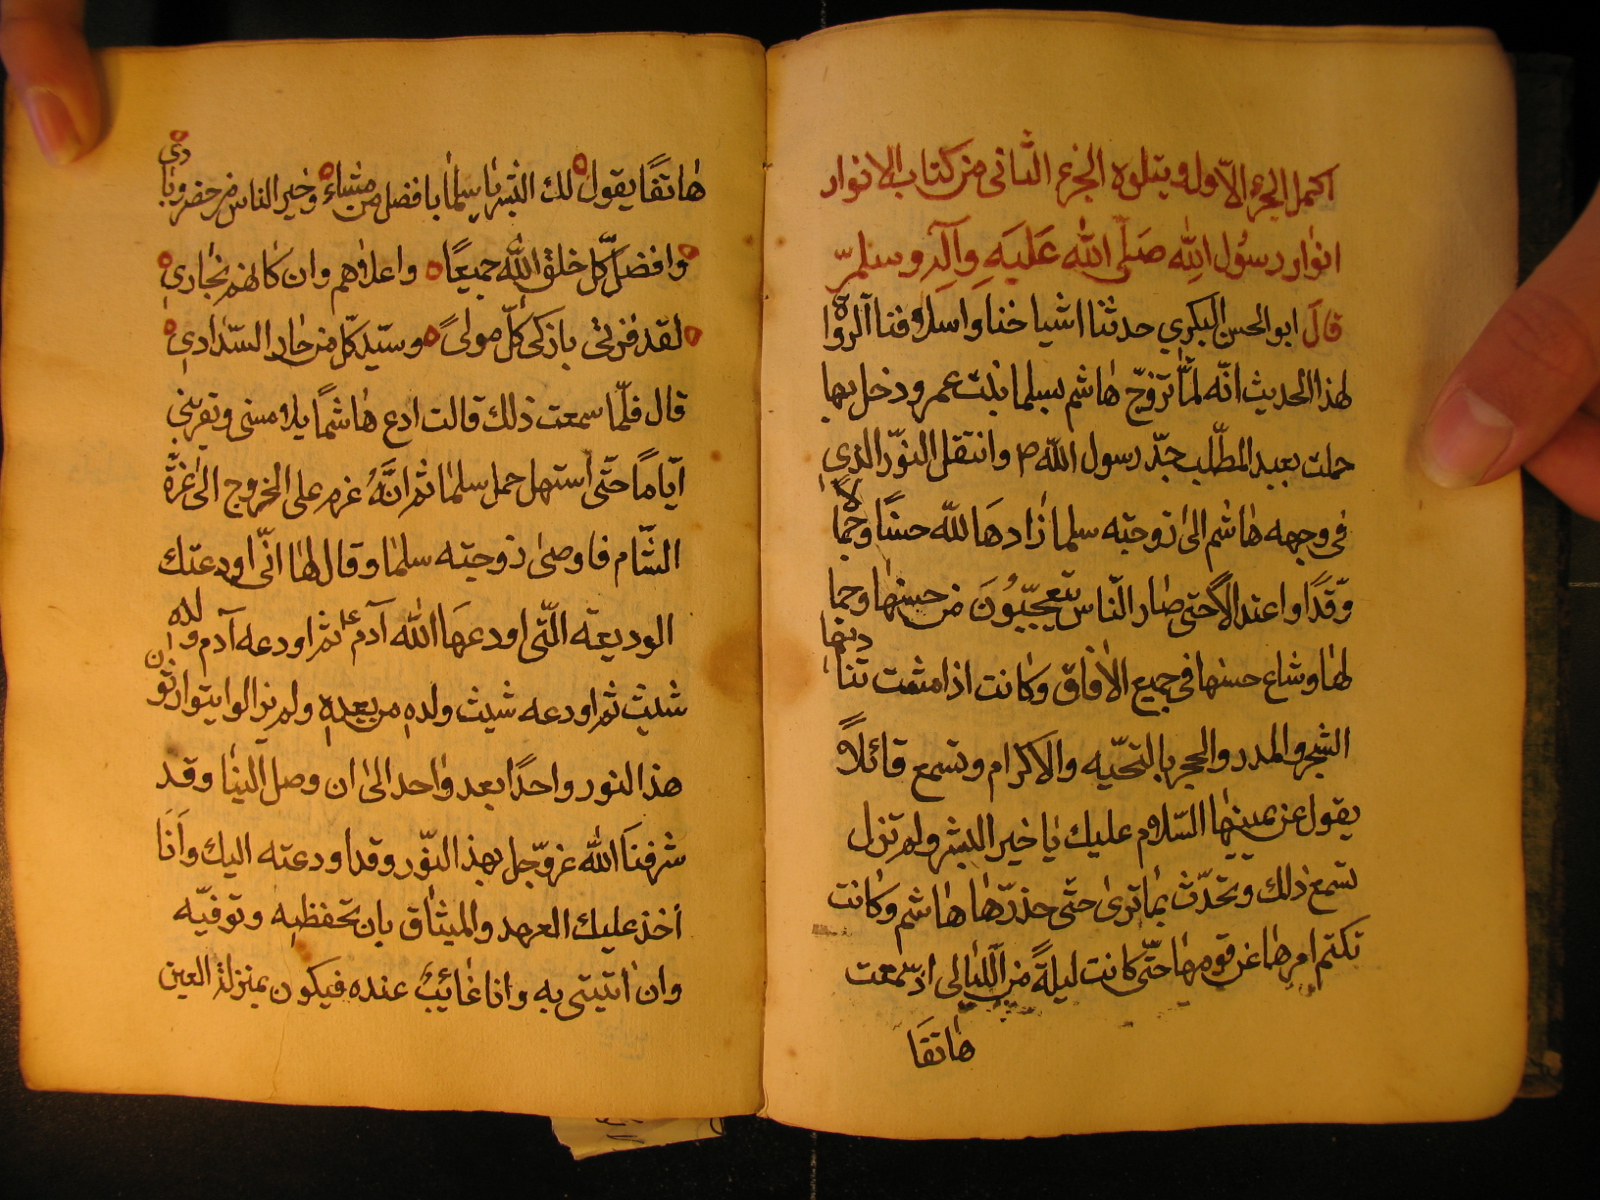 اكمل الجزء الاول ويتلوه الجزء الثانى من كتاب الانوار
انوار رسول الله صلّى الله عليه وآله وسلم
قال ابو الحسن البكري حدثنا اشياخنا واسلافنا الرواة
لهذا الحديث انّه لمّا تزوّج هاشم بسلما بنت عمرو ودخل بها
حملت بعبد المطّلب جدّ رسول الله ص وانتقل النوّر الذي
فى وجهه هاشم الى زوجته سلما زادها لله حسنًا وجمالًا
وقدًّا واعتدالاً حتى صار النّاس يتعجّبون من حسنها وجما
لها وشاع حسنها فى جميع الافاق وكانت اذا مشت تنادیها
الشجر والمدر والحجر بالتحيّه والاكرام وتسمع قائلاً
يقول عن يمينها السّلام عليك يا خير البشر ولم تزل
تسمع ذلك وتحدّث بما ترى حتى حذرّها هاشم وكانت
تكتم امرها عن قومها حتّى كانت ليلةً من اللّيالى اذ سمعت
هاتقا
هاتقًا يقول لك البشر يا سلما بافضل من مشاء وخير الناس من حضر وبادي
وافضل كلّ خلق الله جميعًا واعلاهم وان كانهم نجاري
لقد فزتى بازكى كلّ مولى وسيّد كلّ من حاز السّدادي
قال فلمّا سمعت ذلك قالت ادع هاشمًا يلامسنى وتفربنى
آيامًا حتّى استهل حمل سلما ثم انّهُ عزم على الخروج الى غزّة
الشّام فاوصى زوجته سلما وقال لها انّى اودعتك
الوديعته التّى اودعها الله آدم ع ثم اودعه آدم ولده
شيث ثم اودعه شيث ولده من بعده ولم يزالوا يتوارثون
هذا النور واحدًا بعد واحد الى ان وصل الينا وقد
شرفنا الله عزّ وجل بهذ النّور وقد اودعته اليك وانا
أخذ عليك العهد والميثاق بان تحفظيه وتوفيّه
وان اتيتى به وانا غائبٌ عنده فيكون بمنزلة العين